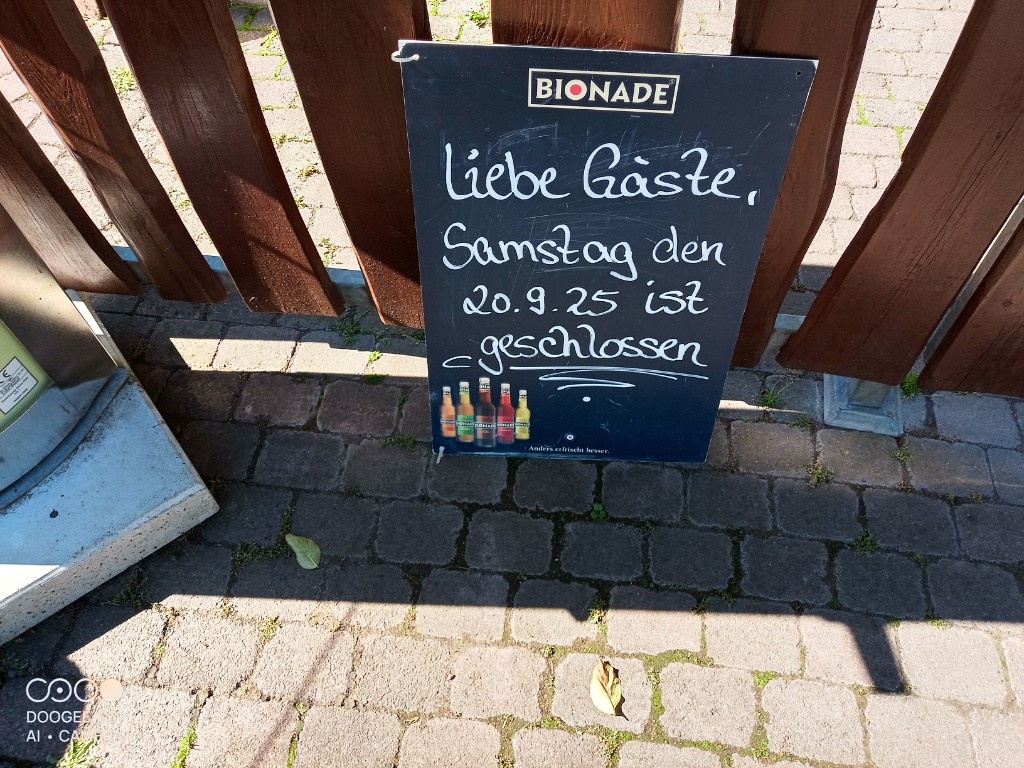 BIONADE
Liebe Gäste,
Samstag den
20.9.25 ist
geschlossen
BIONADE
Anders erfrischt besser.
DOOGEE
AI • CA